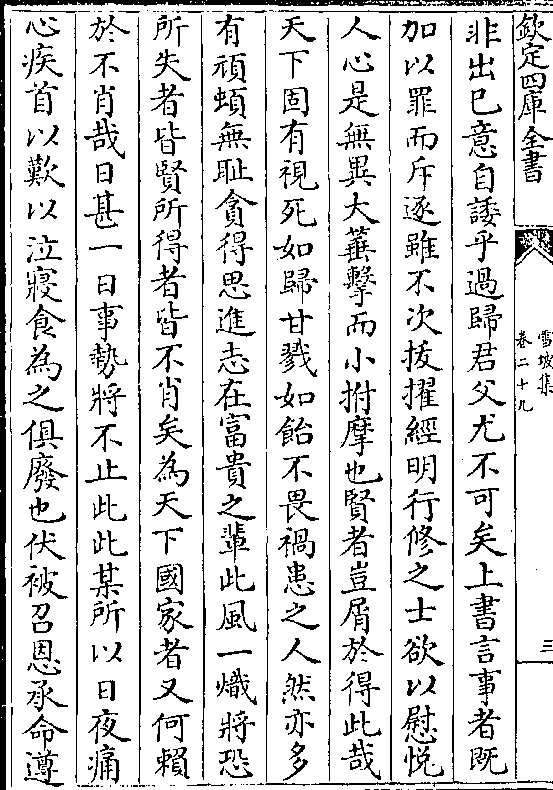 欽定四庫全書
雪坡集
卷二十九
三
非出已意自諉乎過歸君父尤不可矣上書言事者既
加以罪而斥逐雖不次拔擢經明行修之士欲以慰悅
人心是無異大菙擊而小拊摩也賢者豈屑於得此哉
天下固有視死如歸甘戮如飴不畏禍患之人然亦多
有頑蝢無耻貪得思進志在富貴之輩此風一熾將恐
所失者皆賢所得者皆不肖矣為天下國家者又何賴
於不肖哉日甚一日事勢將不止此此某所以日夜痛
心疾首以歎以泣寢食為之俱廢也伏被召恩承命遵